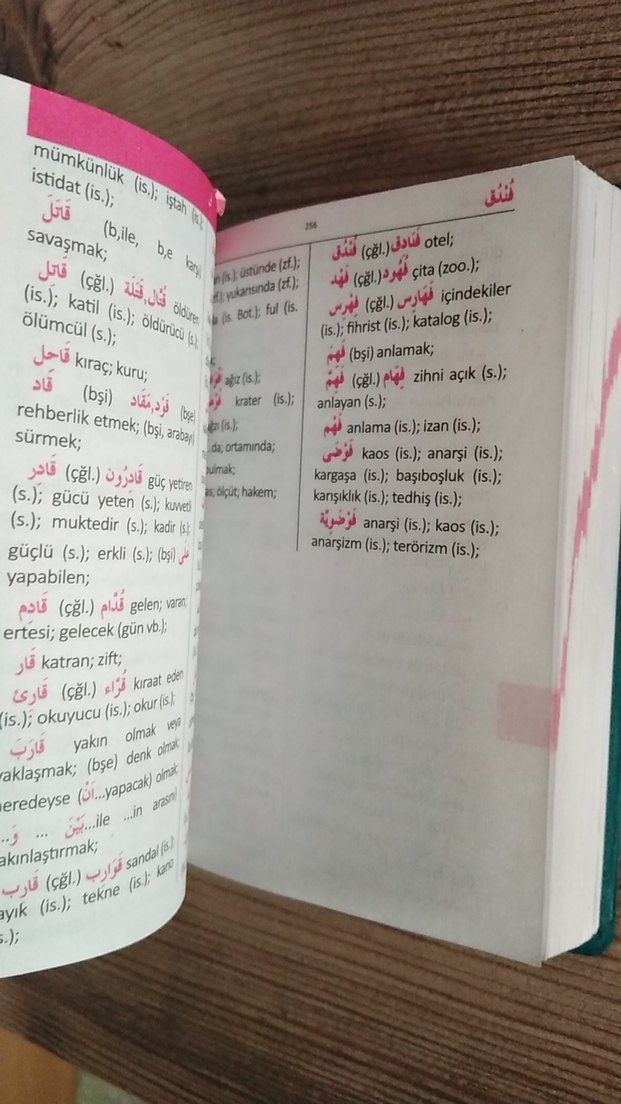 mümkünlük (is.); iştah (is.);
istidat (is.);
قَاتَلَ (b,ile, b,e karşı
savaşmak;
قَاتِل (çğl.) قُتَّال,قَتَلَة öldüren
(is.); katil (is.); öldürücü (s.);
ölümcül (s.);
قَاحِل kıraç; kuru;
قَادَ (bşi) قَوْد,مَقَاد (bşe)
rehberlik etmek; (bşi, arabayı)
sürmek;
قَادِر (çğl.) قَادِرُون güç yetiren
(s.); gücü yeten (s.); kuvvetli
(s.); muktedir (s.); kadir (s.);
güçlü (s.); erkli (s.); (bşi) عَلَى
yapabilen;
قَادِم (çğl.) قُدَّام gelen; varan;
ertesi; gelecek (gün vb.);
قَار katran; zift;
قَارِئ (çğl.) قُرَّاء kıraat eden
(is.); okuyucu (is.); okur (is.);
قَارَبَ yakın olmak veya
yaklaşmak; (bşe) denk olmak;
neredeyse (أنْ...yapacak) olmak;
...وَ ... بَيْنَ...ile ...in arasını
akınlaştırmak;
قَارِب (çğl.) قَوَارِب sandal (is.);
ayık (is.); tekne (is.); kano
s.);
256
(is.); üstünde (zf.);
yukarısında (zf.);
(is. Bot.); ful (is.
ağız (is.);
krater (is.);
(is.);
da; ortamında;
bulmak;
ölçüt; hakem;
فُنْدُق
فُنْدُق (çğl.) فَنَادِق otel;
فَهْد (çğl.) فُهُود çita (zoo.);
فِهْرِس (çğl.) فَهَارِس içindekiler
(is.); fihrist (is.); katalog (is.);
فَهِمَ (bşi) anlamak;
فَهِم (çğl.) فِهَام zihni açık (s.);
anlayan (s.);
فَهْم anlama (is.); izan (is.);
فَوْضَى kaos (is.); anarşi (is.);
kargaşa (is.); başıboşluk (is.);
karışıklık (is.); tedhiş (is.);
فَوْضَوِيَّة anarşi (is.); kaos (is.);
anarşizm (is.); terörizm (is.);